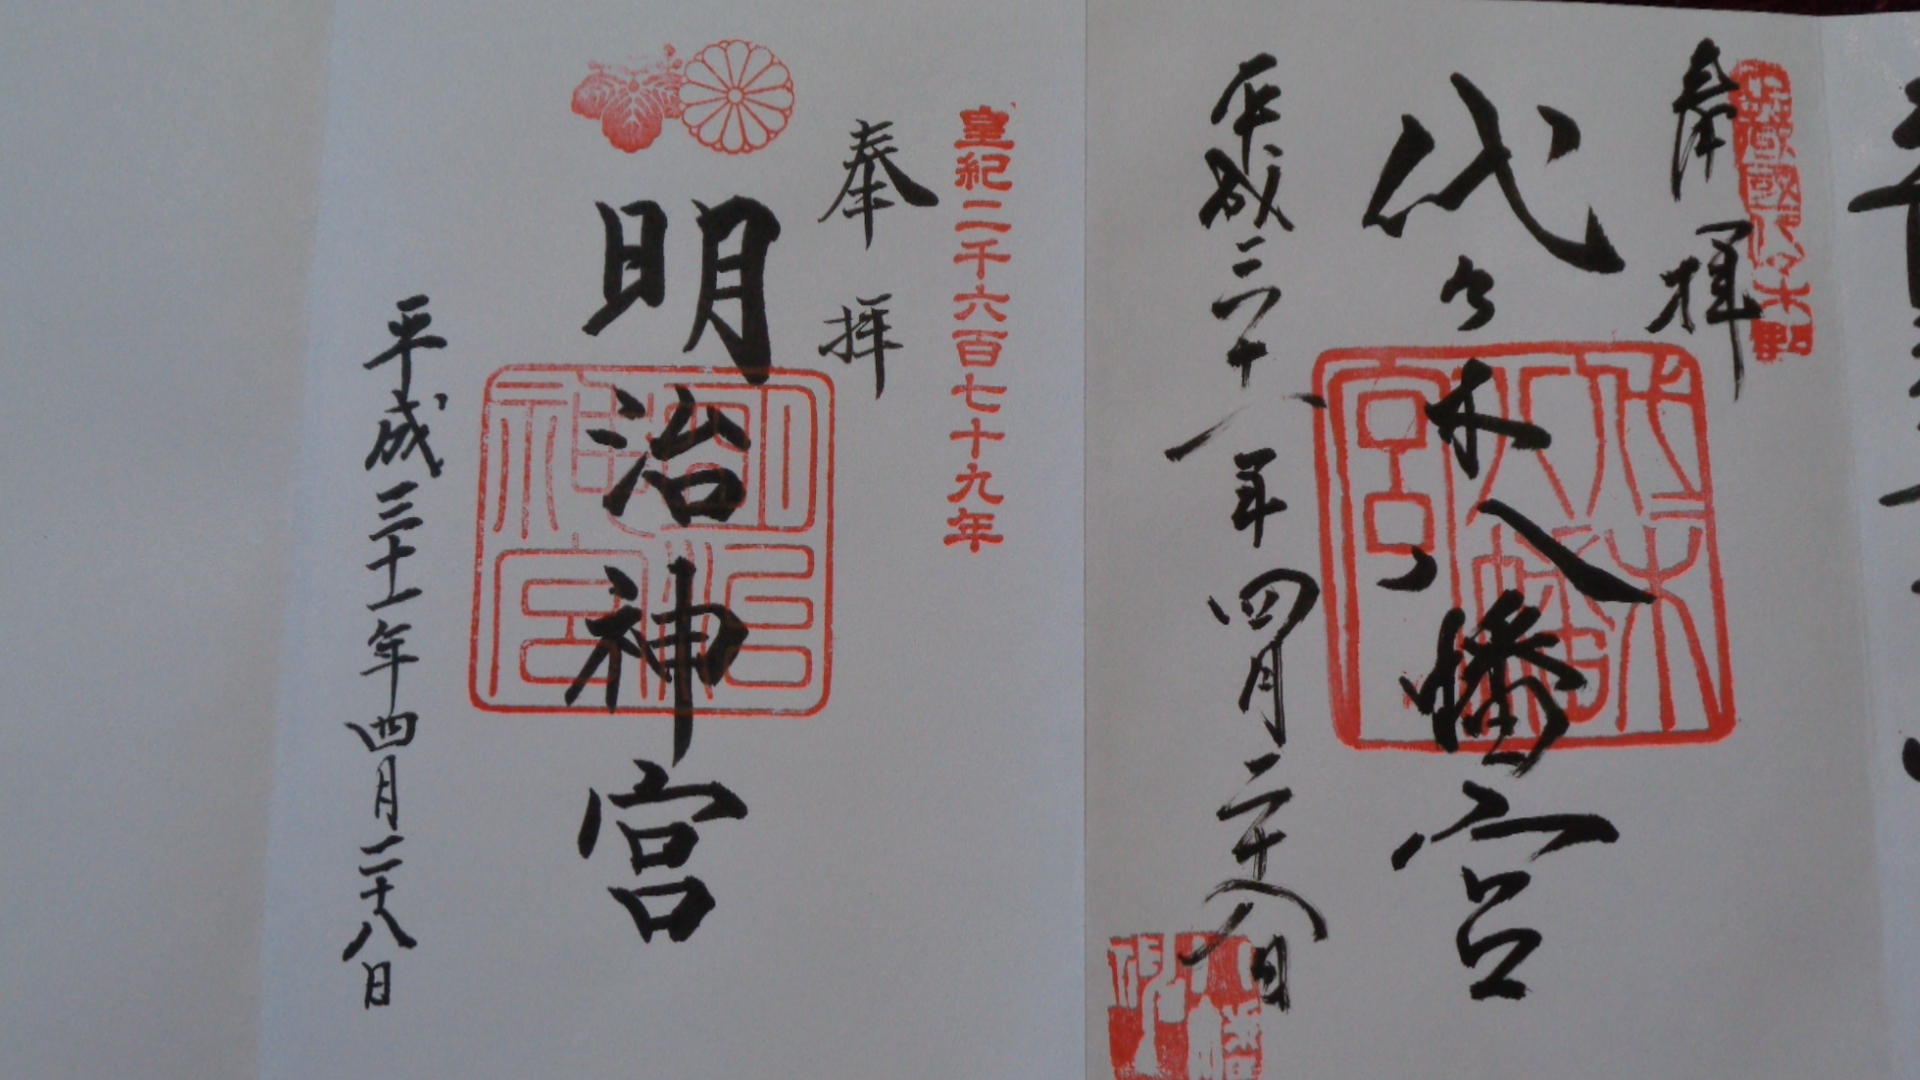 奉拝
代々木八幡宮
平成三十一年四月二十八日
皇紀二千六百七十九年
奉拝
明治神宮
平成三十一年四月二十八日